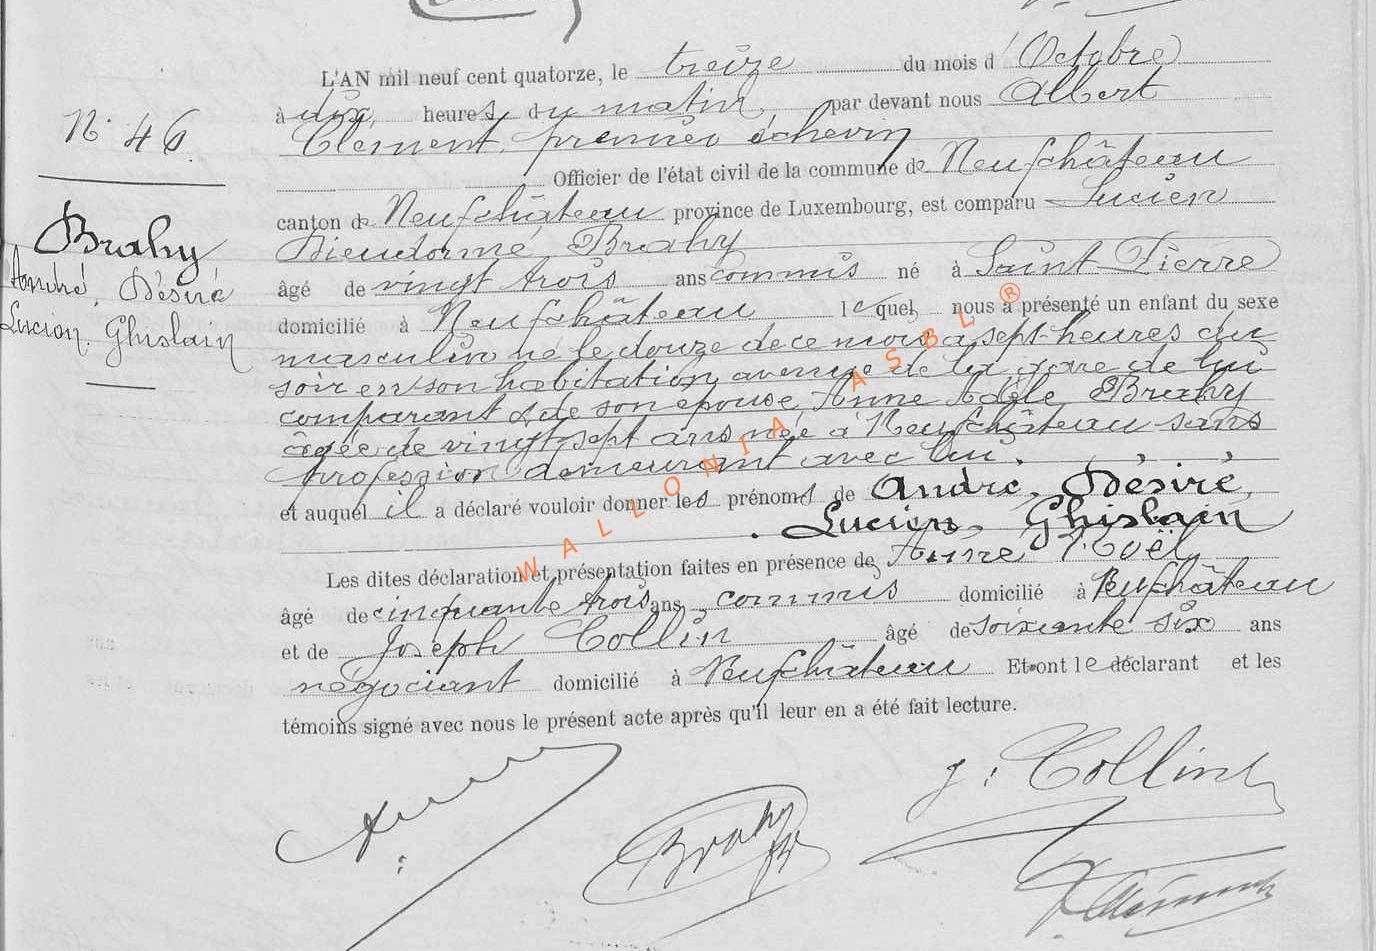 L'AN mil neuf cent quatorze, le treize du mois d'Octobre
à dix heures du matin, par devant nous Albert
Clement, premier échevin
Officier de l'état civil de la commune de Neufchâteau
canton de Neufchâteau province de Luxembourg, est comparu Lucien
Dieudonné Brahy
âgé de vingt trois ans commis né à Saint Pierre
domicilié à Neufchâteau lequel nous a présenté un enfant du sexe
masculin né le douze de ce mois à sept heures du
soir en son habitation, avenue de la gare de lui
comparant & de son épouse, Anne Adèle Brahy
âgée de vingt-sept ans née à Neufchâteau sans
profession demeurant avec lui.
et auquel il a déclaré vouloir donner les prénoms de André, Désiré,
Lucien, Ghislain
Les dites déclaration et présentation faites en présence de Noël
âgé de cinquante trois ans, commis domicilié à Neufchâteau
et de Joseph Collin âgé de soixante six ans
négociant domicilié à Neufchâteau Et ont le déclarant et les
témoins signé avec nous le présent acte après qu'il leur en a été fait lecture.
N. 46.
Brahy
André, Désiré
Lucien, Ghislain
WALLONIA ASBL ®
J. Collin
Brahy